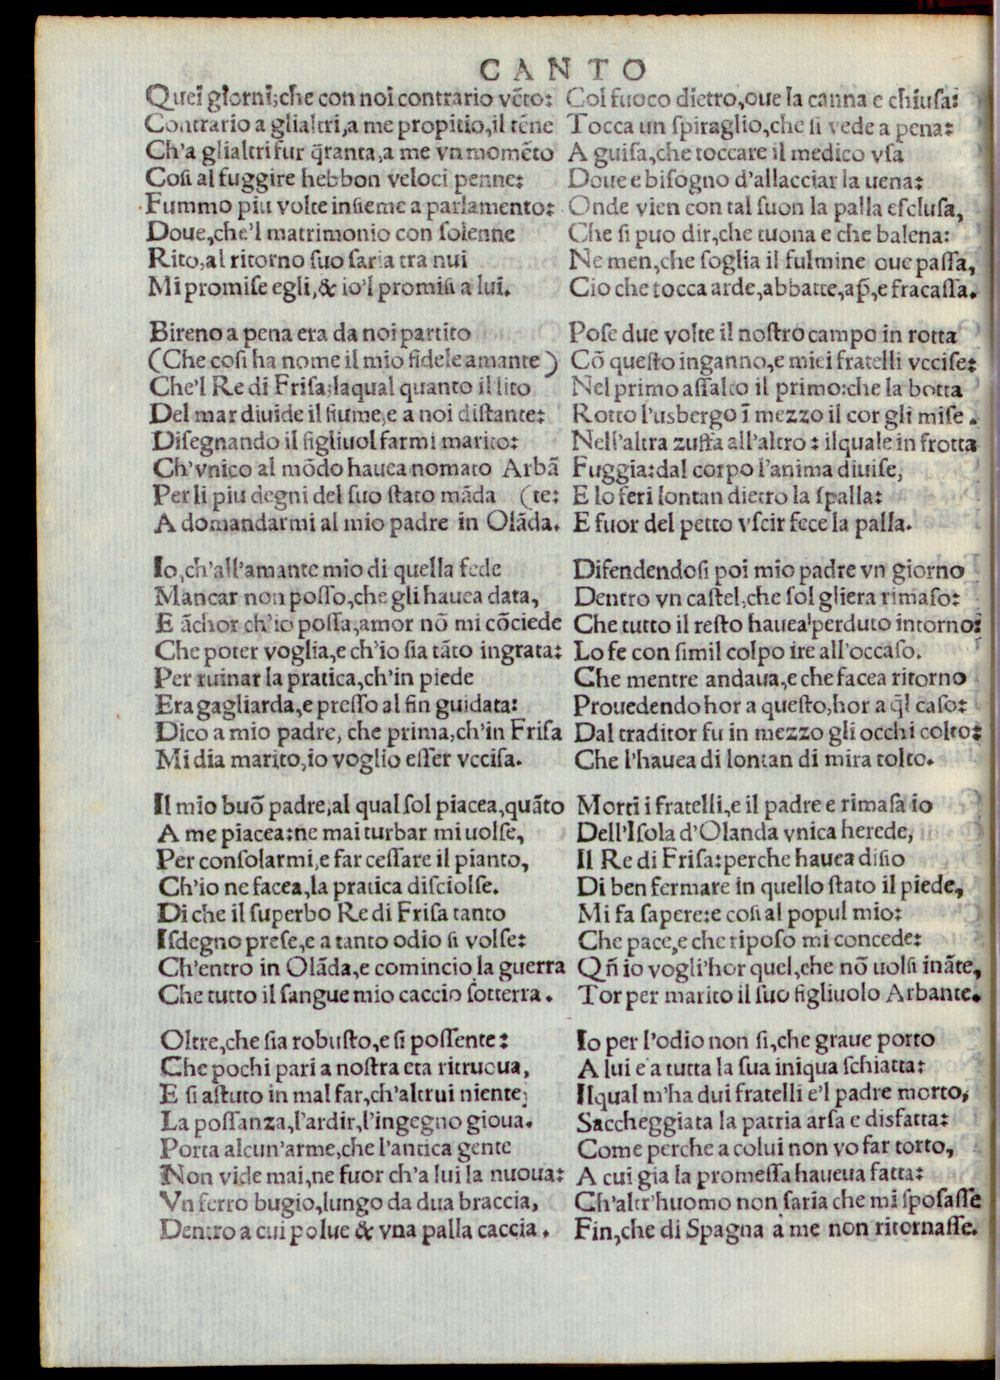 CANTO
Quei giorni;che con noi contrario vēto:
Contrario a glialtri,a me propitio,il tēne
Ch'a glialtri fur q̄ranta,a me vn momēto
Cosi al fuggire hebbon veloci penne:
Fummo piu volte insieme a parlamento:
Doue,che'l matrimonio con solenne
Rito,al ritorno suo saria tra nui
Mi promise egli,& io'l promisi a lui.
Bireno a pena era da noi partito
(Che cosi ha nome il mio fidele amante)
Che'l Re di Frisa;laqual quanto il lito
Del mar diuide il fiume,e a noi distante:
Disegnando il figliuol farmi marito:
Ch'vnico al mōdo hauea nomato Arbā
Per li piu degni del suo stato māda (te:
A domandarmi al mio padre in Olāda.
Io,ch'all'amante mio di quella fede
Mancar non posso,che gli hauea data,
E āchor ch'io possa,amor nō mi cōciede
Che poter voglia,e ch'io sia tāto ingrata:
Per ruinar la pratica,ch'in piede
Era gagliarda,e presso al fin guidata:
Dico a mio padre, che prima,ch'in Frisa
Mi dia marito,io voglio esser vccisa.
Il mio buō padre,al qual sol piacea,quāto
A me piacea:ne mai turbar mi uolse,
Per consolarmi,e far cessare il pianto,
Ch'io ne facea,la pratica disciolse.
Di che il superbo Re di Frisa tanto
Isdegno prese,e a tanto odio si volse:
Ch'entro in Olāda,e comincio la guerra
Che tutto il sangue mio caccio sotterra.
Oltre,che sia robusto,e si possente:
Che pochi pari a nostra eta ritruoua,
E si astuto in mal far,ch'altrui niente;
La possanza,l'ardir,l'ingegno gioua.
Porta alcun'arme,che l'antica gente
Non vide mai,ne fuor ch'a lui la nuoua:
Vn ferro bugio,lungo da dua braccia,
Dentro a cui polue & vna palla caccia.
Col fuoco dietro,oue la canna e chiusa:
Tocca un spiraglio,che si vede a pena:
A guisa,che toccare il medico vsa
Doue e bisogno d'allacciar la uena:
Onde vien con tal suon la palla esclusa,
Che si puo dir,che tuona e che balena:
Ne men,che soglia il fulmine oue passa,
Cio che tocca arde,abbatte,ap̄,e fracassa.
Pose due volte il nostro campo in rotta
Cō questo inganno,e miei fratelli vccise:
Nel primo assalto il primo:che la botta
Rotto l'usbergo ī mezzo il cor gli mise.
Nell'altra zuffa all'altro: ilquale in frotta
Fuggia:dal corpo l'anima diuise,
E lo feri lontan dietro la spalla:
E fuor del petto vscir fece la palla.
Difendendosi poi mio padre vn giorno
Dentro vn castel,che sol gliera rimaso:
Che tutto il resto hauea perduto intorno:
Lo fe con simil colpo ire all'occaso.
Che mentre andaua,e che facea ritorno
Prouedendo hor a questo,hor a q̄l caso:
Dal traditor fu in mezzo gli occhi colto:
Che l'hauea di lontan di mira tolto.
Morti i fratelli,e il padre e rimasa io
Dell'Isola d'Olanda vnica herede,
Il Re di Frisa:perche hauea disio
Di ben fermare in quello stato il piede,
Mi fa sapere:e cosi al popul mio:
Che pace,e che riposo mi concede:
Qn̄ io vogli'hor quel,che nō uolsi ināte,
Tor per marito il suo figliuolo Arbante.
Io per l'odio non si,che graue porto
A lui e a tutta la sua iniqua schiatta:
Ilqual m'ha dui fratelli e'l padre morto,
Saccheggiata la patria arsa e disfatta:
Come perche a colui non vo far torto,
A cui gia la promessa haueua fatta:
Ch'altr'huomo non saria che mi sposasse
Fin,che di Spagna a me non ritornasse.